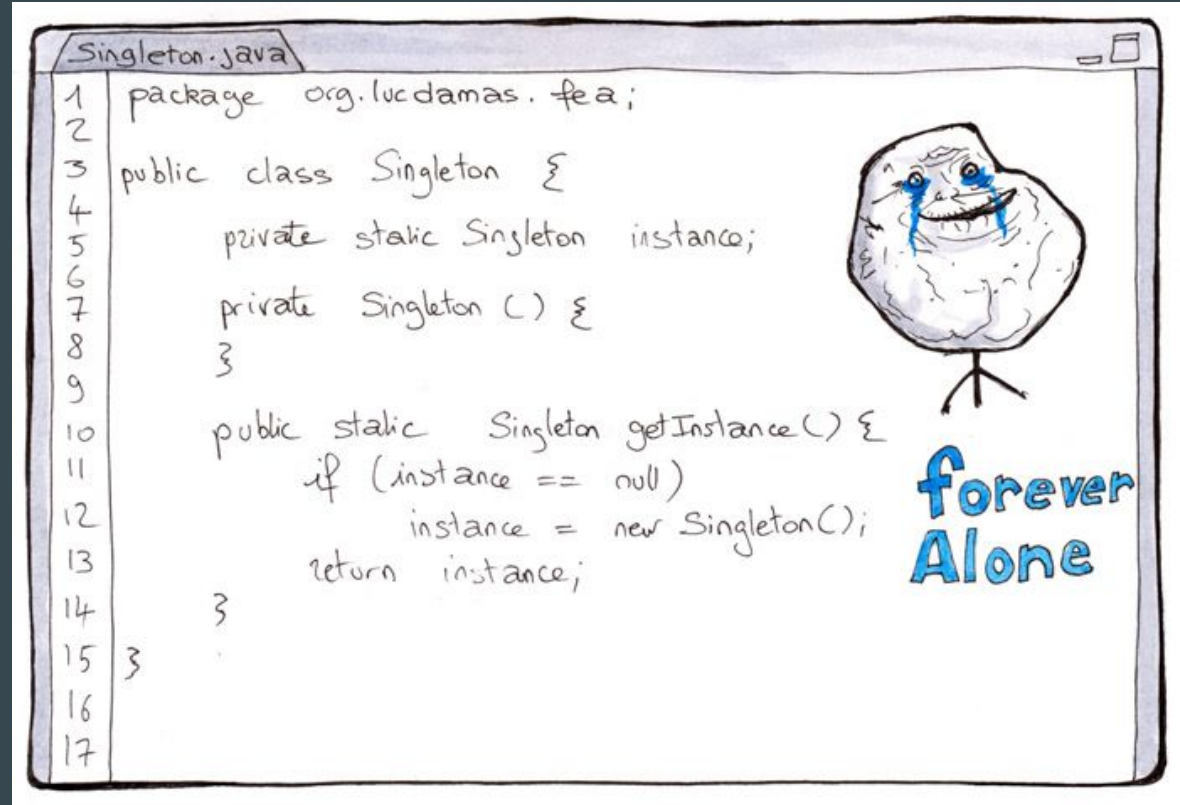 Singleton.java
1 package org.lucdamas.fea;
2
3 public class Singleton {
4
5 private static Singleton instance;
6
7 private Singleton () {
8 }
9
10 public static Singleton getInstance() {
11 if (instance == null)
12 instance = new Singleton();
13 return instance;
14 }
15 }
16
17
forever
Alone